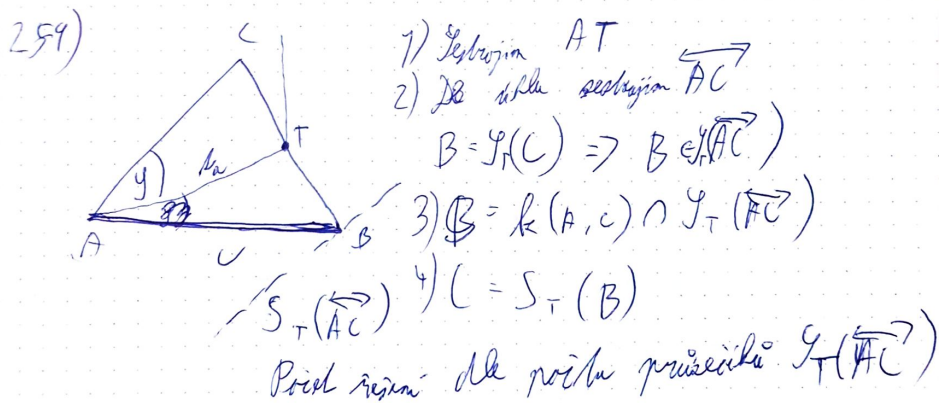 259)
C
T
φ
tₐ
A
c
B
1) Sestrojím AT
2) Dle úhlu sestrojím AC
B = S_T(C) => B ∈ S_T(AC)
3) B = k(A, c) ∩ S_T(AC)
S_T(AC)
4) C = S_T(B)
Počet řešení dle počtu průsečíků S_T(AC)